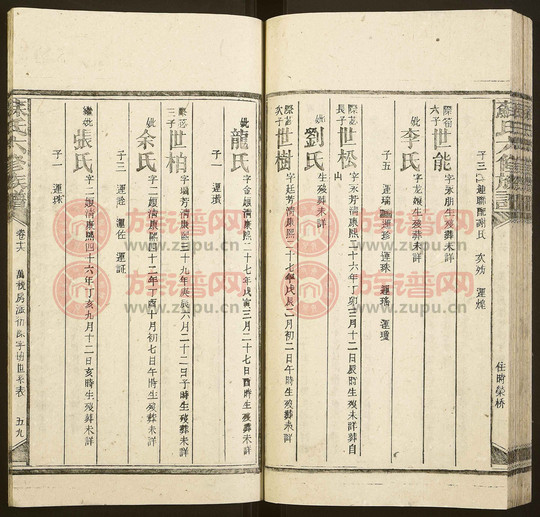 蘇氏六修族譜
子三 運聯配謝氏 次幼 運煌
住時榮桥
六子
世能
字永朋生殁葬未詳
妣
李氏
字龙嬡生殁葬未詳
子五 運瑞 運珍 運珠 運瓊
長子
世松
字永芳清康熙二十六年丁卯三月十二日辰時生殁葬自
山
妣
劉氏
生殁葬未詳
次子
世樹
字廷芳清康熙二十七年戊辰二月初二日午時生殁葬未詳
妣
龍氏
字金嬡清康熙三十七年戊寅三月二十七日酉時生殁葬未詳
子一 運瓚
三子
世柏
芳清康熙三十九年庚辰六月二十二日子時生殁葬未詳
妣
余氏
字二嬡清康熙四十二年丁酉十月初七日午時生殁葬未詳
子三 運 運佐 運証
繼妣
張氏
字二嬡清康熙四十六年丁亥九月十二日亥時生殁葬未詳
子一 運
蘇氏六修族譜
五九
族谱网
www.zupu.cn
族谱网
www.zupu.cn
族谱网
www.zupu.cn
族谱网
www.zupu.cn